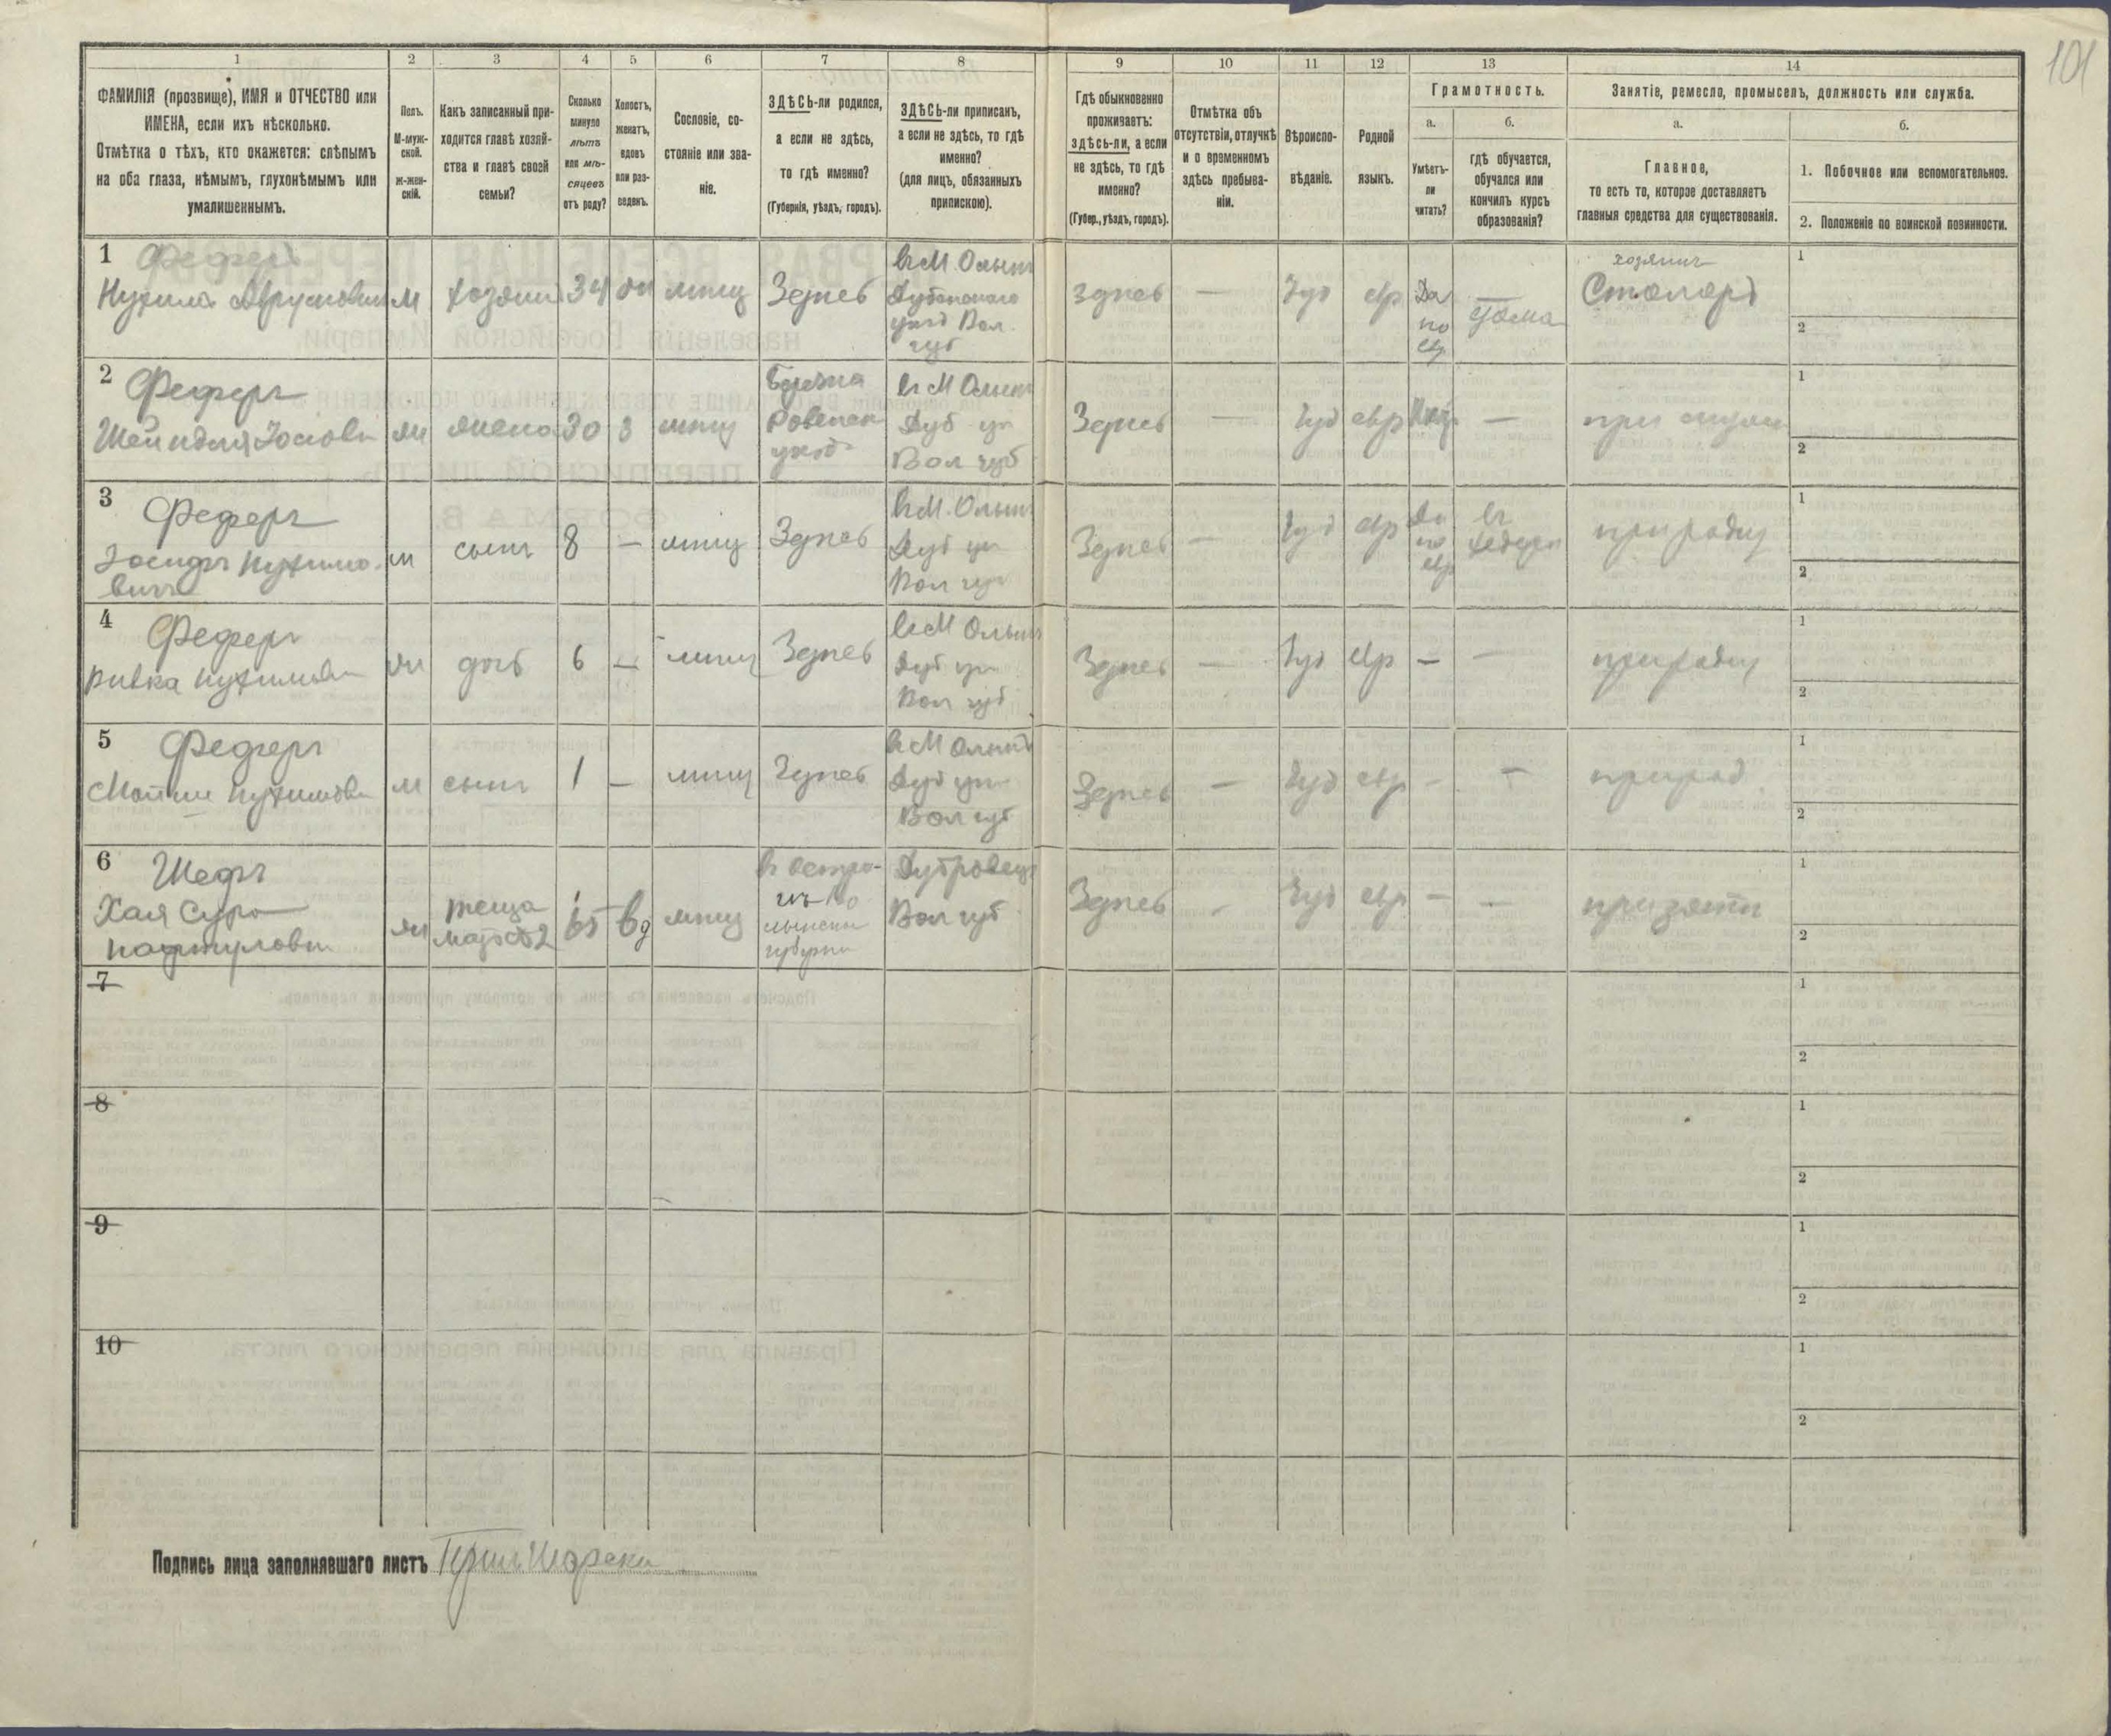 101
1
2
3
4
5
6
7
8
9
10
11
12
13
14
ФАМИЛІЯ (прозвище), ИМЯ и ОТЧЕСТВО или
ИМЕНА, если ихъ нѣсколько.
Отмѣтка о тѣхъ, кто окажется: слѣпымъ
на оба глаза, нѣмымъ, глухонѣмымъ или
умалишеннымъ.
Полъ.
М-муж-
ской.
ж-жен-
скій.
Какъ записанный при-
ходится главѣ хозяй-
ства и главѣ своей
семьи?
Сколько
минуло
лѣтъ
или мѣ-
сяцевъ
отъ роду?
Холостъ,
женатъ,
вдовъ
или раз-
веденъ.
Сословіе, со-
стояніе или зва-
ніе.
ЗДѢСЬ-ли родился,
а если не здѣсь,
то гдѣ именно?
(Губернія, уѣздъ, городъ).
ЗДѢСЬ-ли приписанъ,
а если не здѣсь, то гдѣ
именно?
(для лицъ, обязанныхъ
припискою).
Гдѣ обыкновенно
проживаетъ:
здѣсь-ли, а если
не здѣсь, то гдѣ
именно?
(Губер., уѣздъ, городъ).
Отмѣтка объ
отсутствіи, отлучкѣ
и о временномъ
здѣсь пребыва-
ніи.
Вѣроиспо-
вѣданіе.
Родной
языкъ.
Грамотность.
а.
Умѣетъ-
ли
читать?
б.
гдѣ обучается,
обучался или
кончилъ курсъ
образованія?
Занятіе, ремесло, промыселъ, должность или служба.
а.
Главное,
то есть то, которое доставляетъ
главныя средства для существованія.
б.
1. Побочное или вспомогательное.
2. Положеніе по воинской повинности.
1
Феферъ
Нухимъ
м
хозяин
34
мѣщ
Здѣсь
въ М. Олык
Дубенского
уѣзд Вол.
губ
здѣсь
—
Іуд
евр
Да
по
евр
дома
хозяинъ
Столяръ
1
2
2
Феферъ
Шейндля
жена
30
з
мѣщ
Ровенск
уѣзд
въ М Олык
Дуб уѣ
Вол губ
Здѣсь
—
Іуд
евр
—
при муж
1
2
3
Феферъ
Іосифъ Нухимо-
вичъ
м
сынъ
8
—
мѣщ
Здѣсь
въ М. Олык
Дуб уѣ
Вол губ
Здѣсь
—
Іуд
евр
Да
по
евр
въ
хедере
при родит
1
2
4
Феферъ
Ривка Нухимовн
ж
дочь
6
—
мѣщ
Здѣсь
въ М Олык
Дуб уѣ
Вол губ
Здѣсь
—
Іуд
евр
—
—
при родит
1
2
5
Феферъ
м
сынъ
1
—
мѣщ
Здѣсь
въ М Олык
Дуб уѣ
Вол губ
Здѣсь
—
Іуд
евр
—
—
при род
1
2
6
Хая Сура
ж
теща
65
вд
мѣщ
въ Остро-
гѣ Во
лынской
губерни
Вол губ
Здѣсь
Іуд
евр
—
—
при зяти
1
2
7
1
2
8
1
2
9
1
2
10
1
2
Подпись лица заполнявшаго листъ